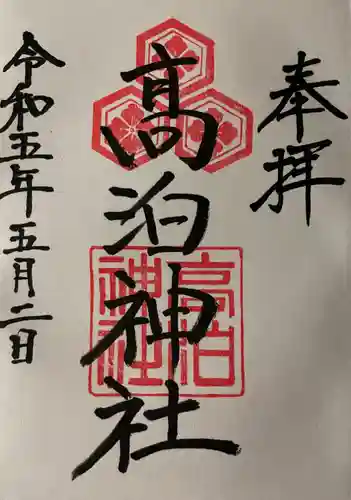 奉拝
高泊神社
高泊
神社
令和五年五月二日